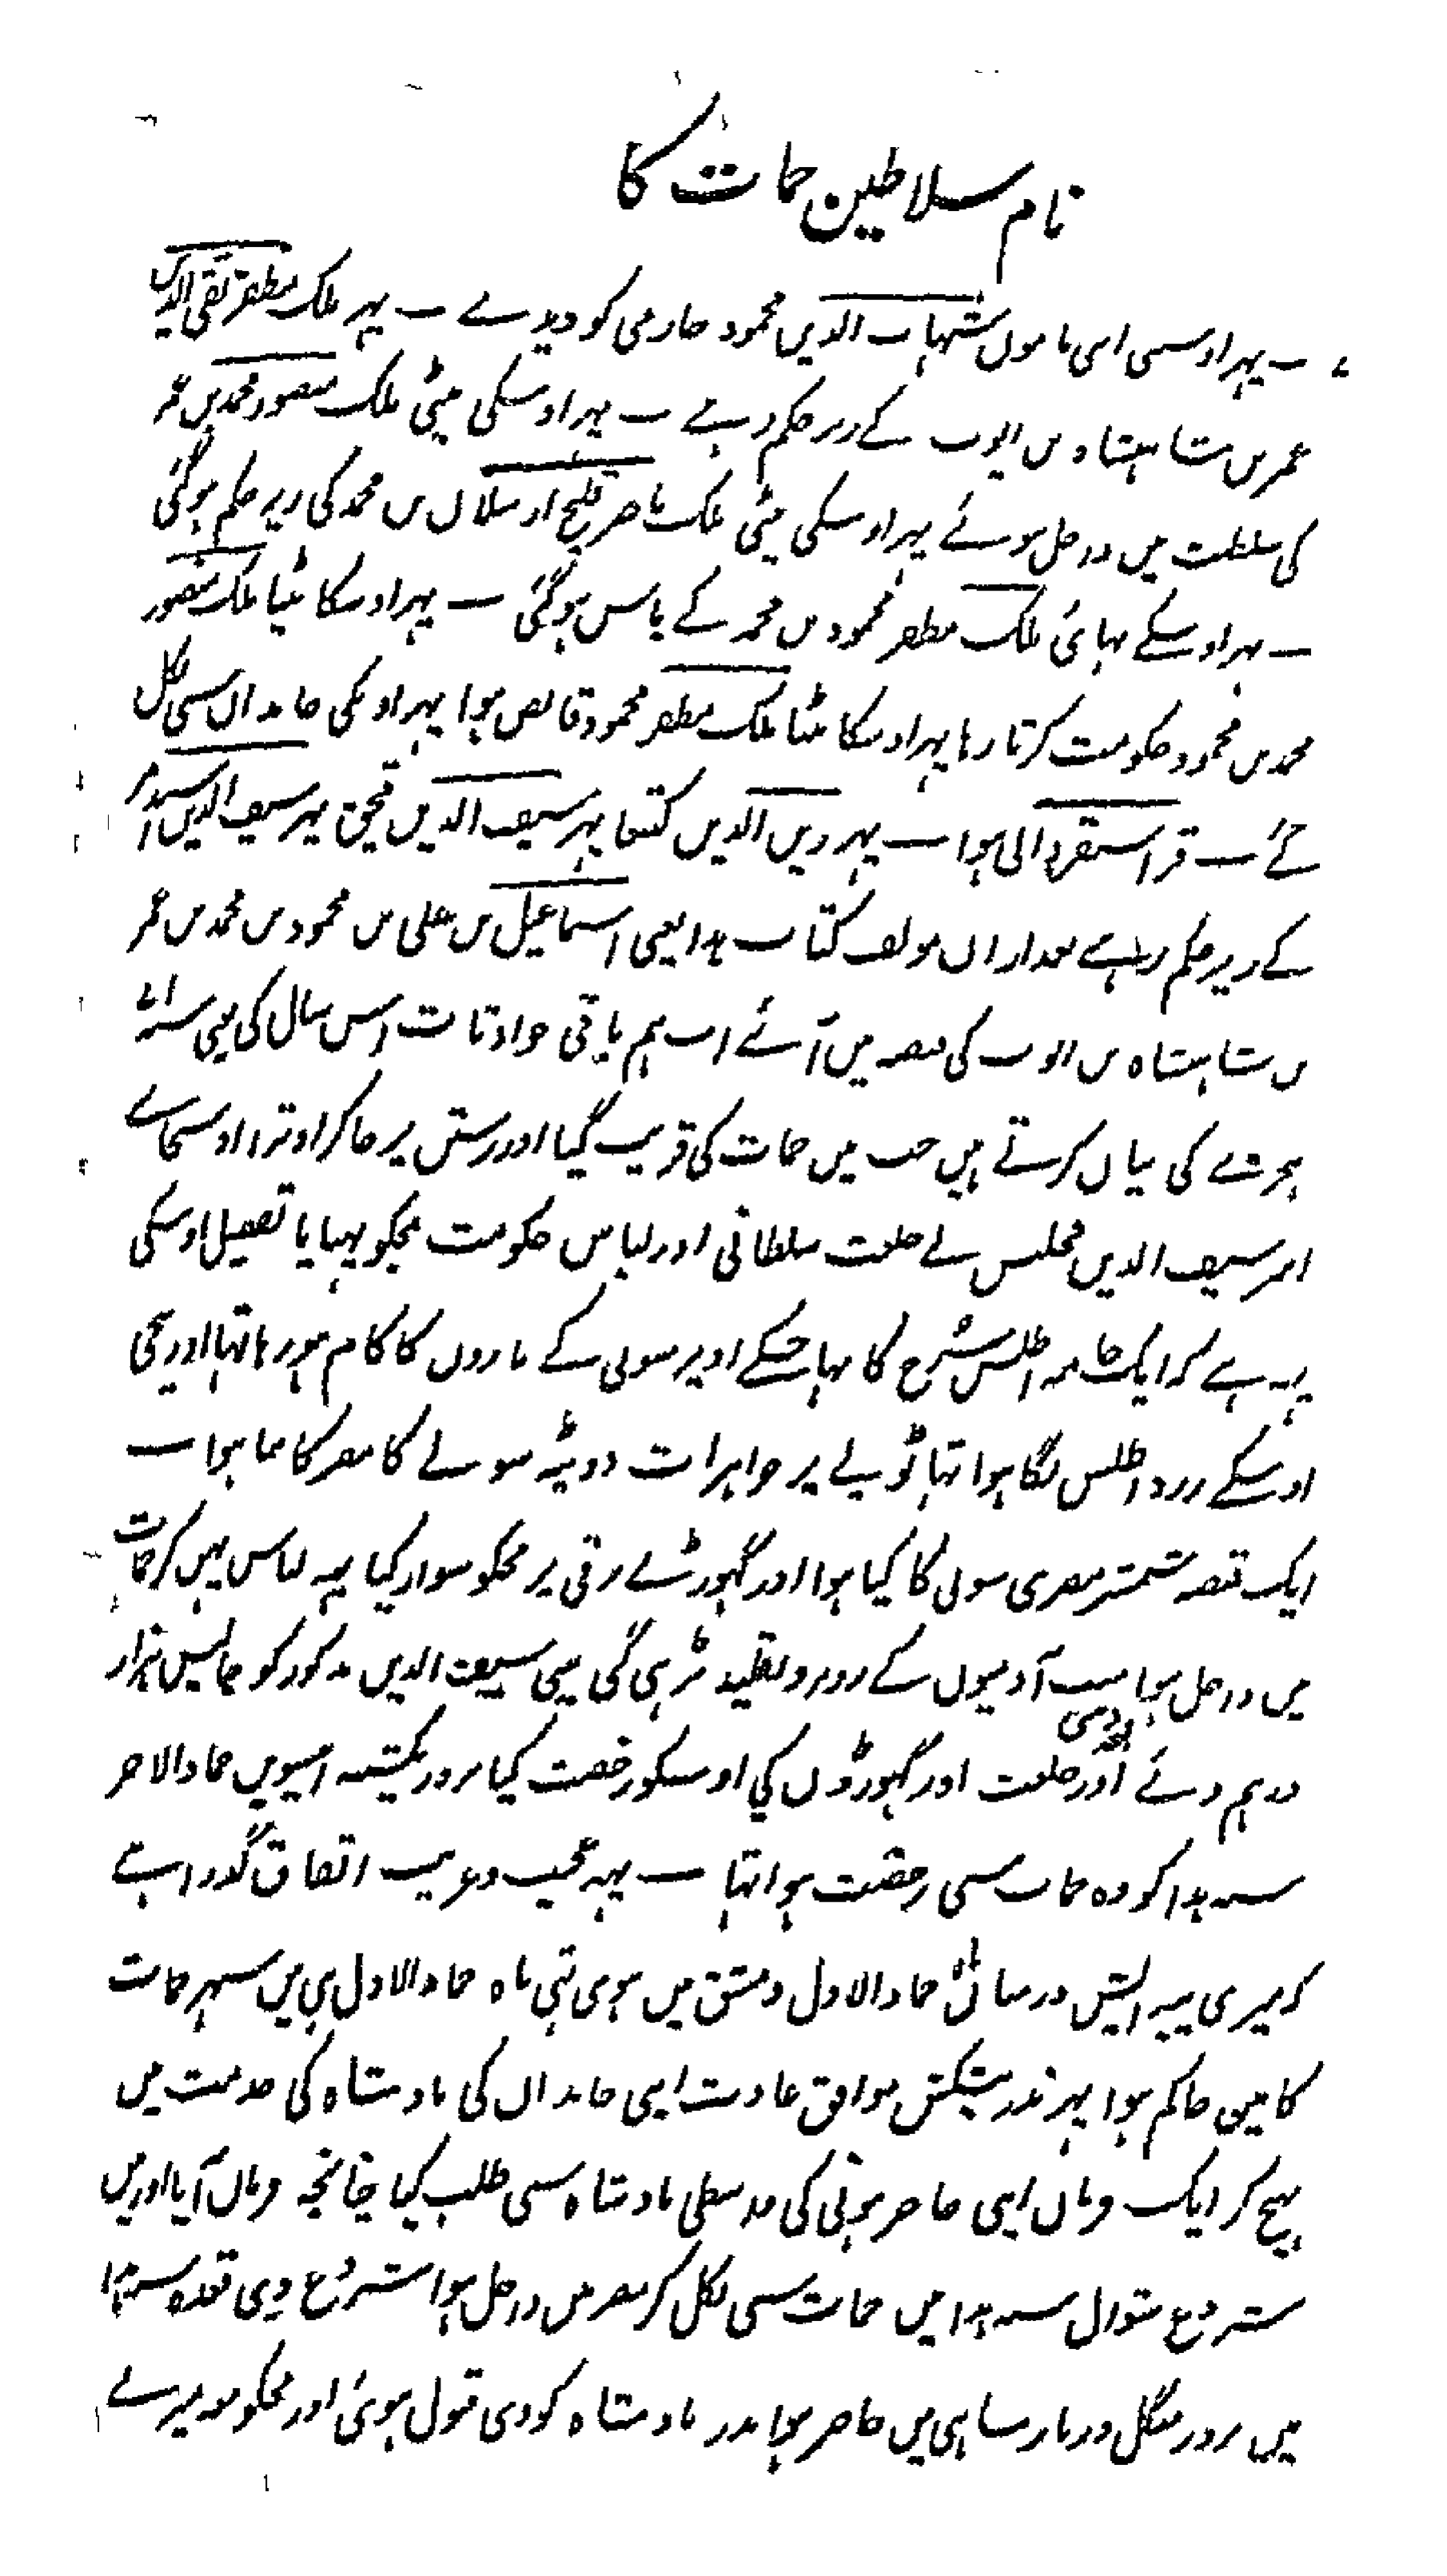 نام سلاطین حمات کا
پہر اوسی اپنی مامون شہاب الدین محمود حارمی کو دیدے ۔ پہر ملک مظفر تقی الدین
عمر بن شاہنشاہ بن ایوب کے زیر حکم رہے ۔ پہر اوسکی بیٹی ملک منصور محمد بن عمر
کی سلطنت میں داخل ہوئے پہر اوسکی بیٹی ملک ناصر قلیج ارسلان بن محمد کی زیر حکم ہوگئی
۔ پہر اوسکے بہائی ملک مظفر محمود بن محمد کے پاس ہوگئی ۔ پہر اوسکا بیٹا ملک منصور
محمد بن محمود حکومت کرتا رہا پہر اوسکا بیٹا ملک مظفر محمود قابض ہوا پہر اونکی خاندان سی نکل
گئے ۔ قراسنقر والی ہوا ۔ پہر زین الدین کتبغا پہر سیف الدین قبجق پہر سیف الدین اسندمر
کے زیر حکم رہے بعد ازان مولف کتاب ہذا یعنی اسماعیل بن علی بن محمود بن محمد بن عمر
بن شاہنشاہ بن ایوب کی قبضہ میں آئے اب ہم باقی حوادثات اس سال کی یعنی سنہ ۷۱۰
ہجرے کی بیان کرتے ہین جب میں حمات کی قریب گیا اور رستن پر جاکر اوترا اوسجاے
امیر سیف الدین مجلس نے خلعت سلطانی اور لباس حکومت مجکو پہنایا تفصیل اوسکی
یہہ ہے کہ ایک جامہ اطلس سرخ کا تہا جسکے اوپر سونی کے تارون کا کام ہو رہا تہا اور نیچی
اوسکے زرد اطلس لگا ہوا تہا ٹوپے پر جواہرات دوپٹہ سونے کا مصر کا بنا ہوا ۔
ایک قبضہ شمشیر مصری سونی کا کیا ہوا اور گہوڑے برقی پر مجکو سوار کیا یہہ لباس پہن کر حمات
میں داخل ہوا سب آدمیون کے روبرو تقلید پڑہی گی مینی سیف الدین مذکور کو چالیس ہزار
درہم دئے اور خلعت اور گہوڑون کی اوسکو رخصت کیا بروز یکشنبہ اٹیسوین جمادالاخر
سنہ ہذا کو وہ حمات سی رخصت ہوا تہا ۔ یہہ عجیب و غریب اتفاق گذرا ہے
کہ میری پیدایش درمیان ماہ جمادالاول دمشق میں ہوی تہی ماہ جمادالاول ہی میں شہر حمات
کا مین حاکم ہوا پہر نذر پیشکش موافق عادت اپنی خاندان کی بادشاہ کی خدمت میں
بہیج کر ایک فرمان اپنی حاضر ہونی کی بادشاہ سی طلب کیا چنانچہ فرمان آیا اور مین
شروع شوال سنہ ہذا میں حمات سی نکل کر مصر میں داخل ہوا شروع ذی قعدہ سنہ ہذا
میں بروز منگل دربار شاہی میں حاضر ہوا نذر بادشاہ کو دی قبول ہوئی اور مجکو معہ میرے